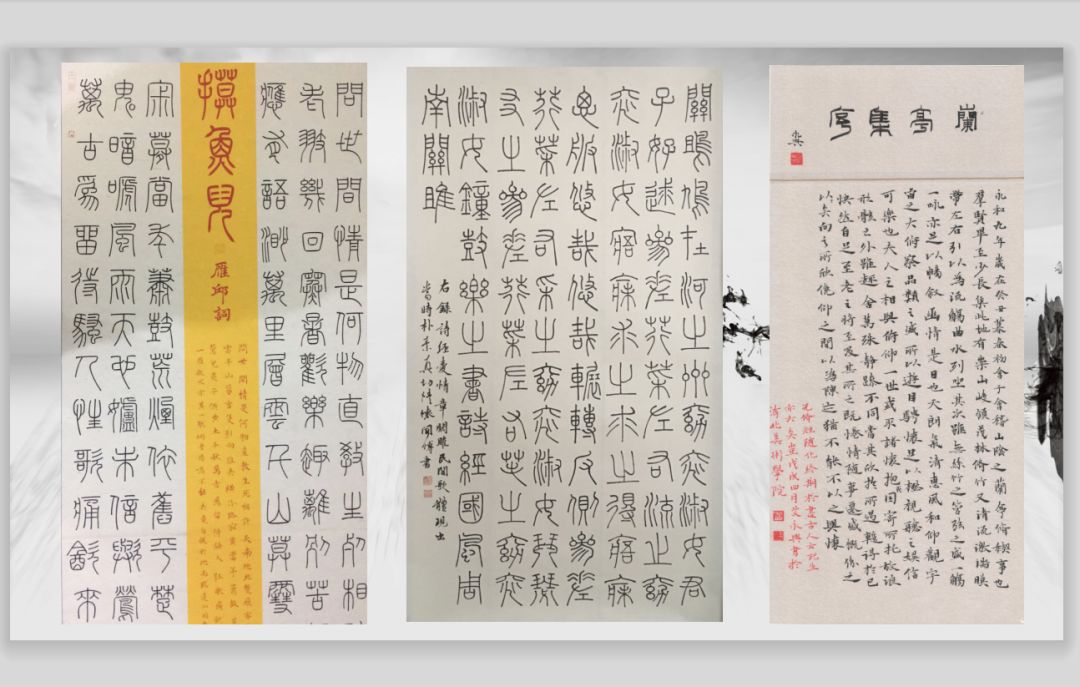 問世間情是何物直教生死相
老翅幾回寒暑歡樂趣離別苦
應有語渺萬里層雲千山暮雪
摸魚兒
雁邱詞
寂寞當年蕭鼓荒煙依舊平楚
鬼暗啼風雨天也妒未信與鶯
萬古為留待騷人狂歌痛飲來
關雎鳩在河之州窈窕淑女君
子好逑參差荇菜左右流之窈
窕淑女寤寐求之求之得寤寐
思服悠哉悠哉輾轉反側參差
荇菜左右采之窈窕淑女琴瑟
友之參差荇菜左右芼之窈窕
淑女鐘鼓樂之書詩經國風周
南關雎
右錄詩經愛情章關雎民間歌體現出
當時朴素真切情懷開博書
蘭亭集序
永興
永和九年歲在癸丑暮春初會于會稽山陰之蘭亭脩稧事也
羣賢畢至少長集此地有崇山峻領茂林脩竹又清流激湍暎
帶左右引以為流觴曲水列坐其次雖無絲竹之管弦之盛一觴
一詠亦足以暢敘幽情是日也天朗氣清惠風和仰觀宇
宙之大俯察品類之盛所以遊目騁懷足以極視聽之娛信
可樂也夫人之相與俯仰一世或取諸懷抱因寄所托放浪
形骸之外雖趣舍萬殊靜躁不同當其欣於所遇蹔得於己
快然自足至老之將至及其所之既惓情隨事遷感慨係之
以矣向之所欣俛仰之間以為陳之猶不能不以之興懷
況脩短隨化終期於盡古人云死生
亦大矣戊戌四月艾永興書於
清北美術學院